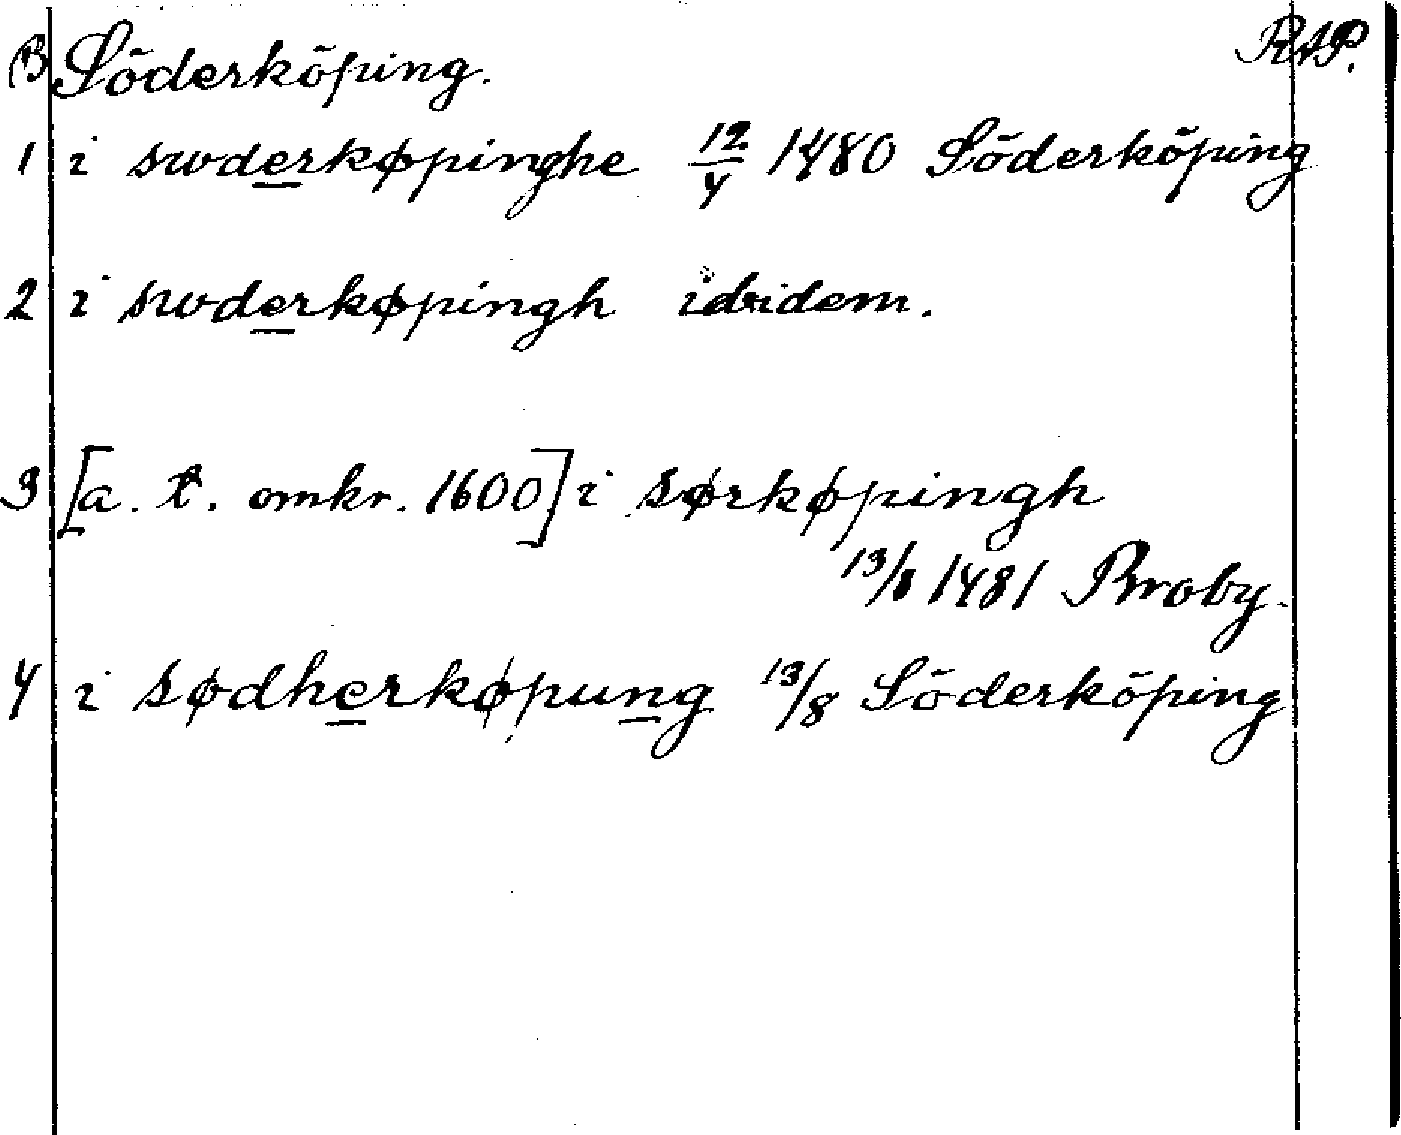 B Söderköping. RAP.
1 i swderkøpinghe 12/4 1480 Söderköping
2 i swderkøpingh ibidem.
3 [a. t. omkr. 1600] i sørkøpingh
13/8 1481 Broby.
4 i sødherkøpung 13/8 Söderköping